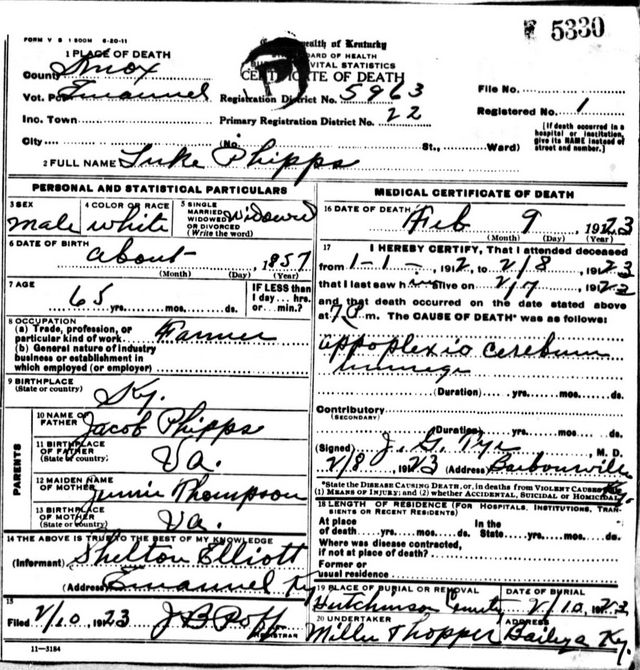 FORM V S 1 500M 6-20-11
5330
1 PLACE OF DEATH
Commonwealth of Kentucky
BOARD OF HEALTH
VITAL STATISTICS
CERTIFICATE OF DEATH
County Knox
Vot. Pct Emanuel
Registration District No. 5963
File No.
Inc. Town
Primary Registration District No. 22
Registered No. 1
City (No. St., Ward)
[If death occurred in a
hospital or institution,
give its NAME instead of
street and number.]
2 FULL NAME Luke Phipps
PERSONAL AND STATISTICAL PARTICULARS
3 SEX
male
4 COLOR OR RACE
white
5 SINGLE
MARRIED
WIDOWED
OR DIVORCED
(Write the word)
Widowed
6 DATE OF BIRTH
about 1857
(Month) (Day) (Year)
7 AGE
65 yrs. mos. ds.
IF LESS than
1 day... hrs.
or... min.?
8 OCCUPATION
(a) Trade, profession, or
particular kind of work Farmer
(b) General nature of industry
business or establishment in
which employed (or employer)
9 BIRTHPLACE
(State or country)
Ky.
PARENTS
10 NAME OF
FATHER
Jacob Phipps
11 BIRTHPLACE
OF FATHER
(State or country)
Va.
12 MAIDEN NAME
OF MOTHER
Thompson
13 BIRTHPLACE
OF MOTHER
(State or country)
Va.
14 THE ABOVE IS TRUE TO THE BEST OF MY KNOWLEDGE
(Informant) Shelton Elliott
(Address) Emanuel Ky
15
Filed 2/10 1923 J B
REGISTRAR
11-3184
MEDICAL CERTIFICATE OF DEATH
16 DATE OF DEATH
Feb 9 1923
(Month) (Day) (Year)
17 I HEREBY CERTIFY, That I attended deceased
from 1-1-, 192, to 2/8, 1923
that I last saw him alive on 2/7, 192
and that death occurred on the date stated above
at 7 P m. The CAUSE OF DEATH* was as follows:
(Duration) yrs. mos. ds.
Contributory
(SECONDARY)
(Duration) yrs. mos. ds.
(Signed) J. G. Tye M. D.
2/8, 1923 (Address) Barbourville Ky.
*State the DISEASE CAUSING DEATH, or, in deaths from VIOLENT CAUSES
(1) MEANS OF INJURY; and (2) whether ACCIDENTAL, SUICIDAL or HOMICIDAL
18 LENGTH OF RESIDENCE (FOR HOSPITALS, INSTITUTIONS, TRANSIENTS OR RECENT RESIDENTS)
At place
of death yrs. mos. ds.
In the
State yrs. mos. ds.
Where was disease contracted,
if not at place of death?
Former or
usual residence
19 PLACE OF BURIAL OR REMOVAL
Hutchinson
DATE OF BURIAL
2/10, 192
20 UNDERTAKER
Miller
ADDRESS
Ky.